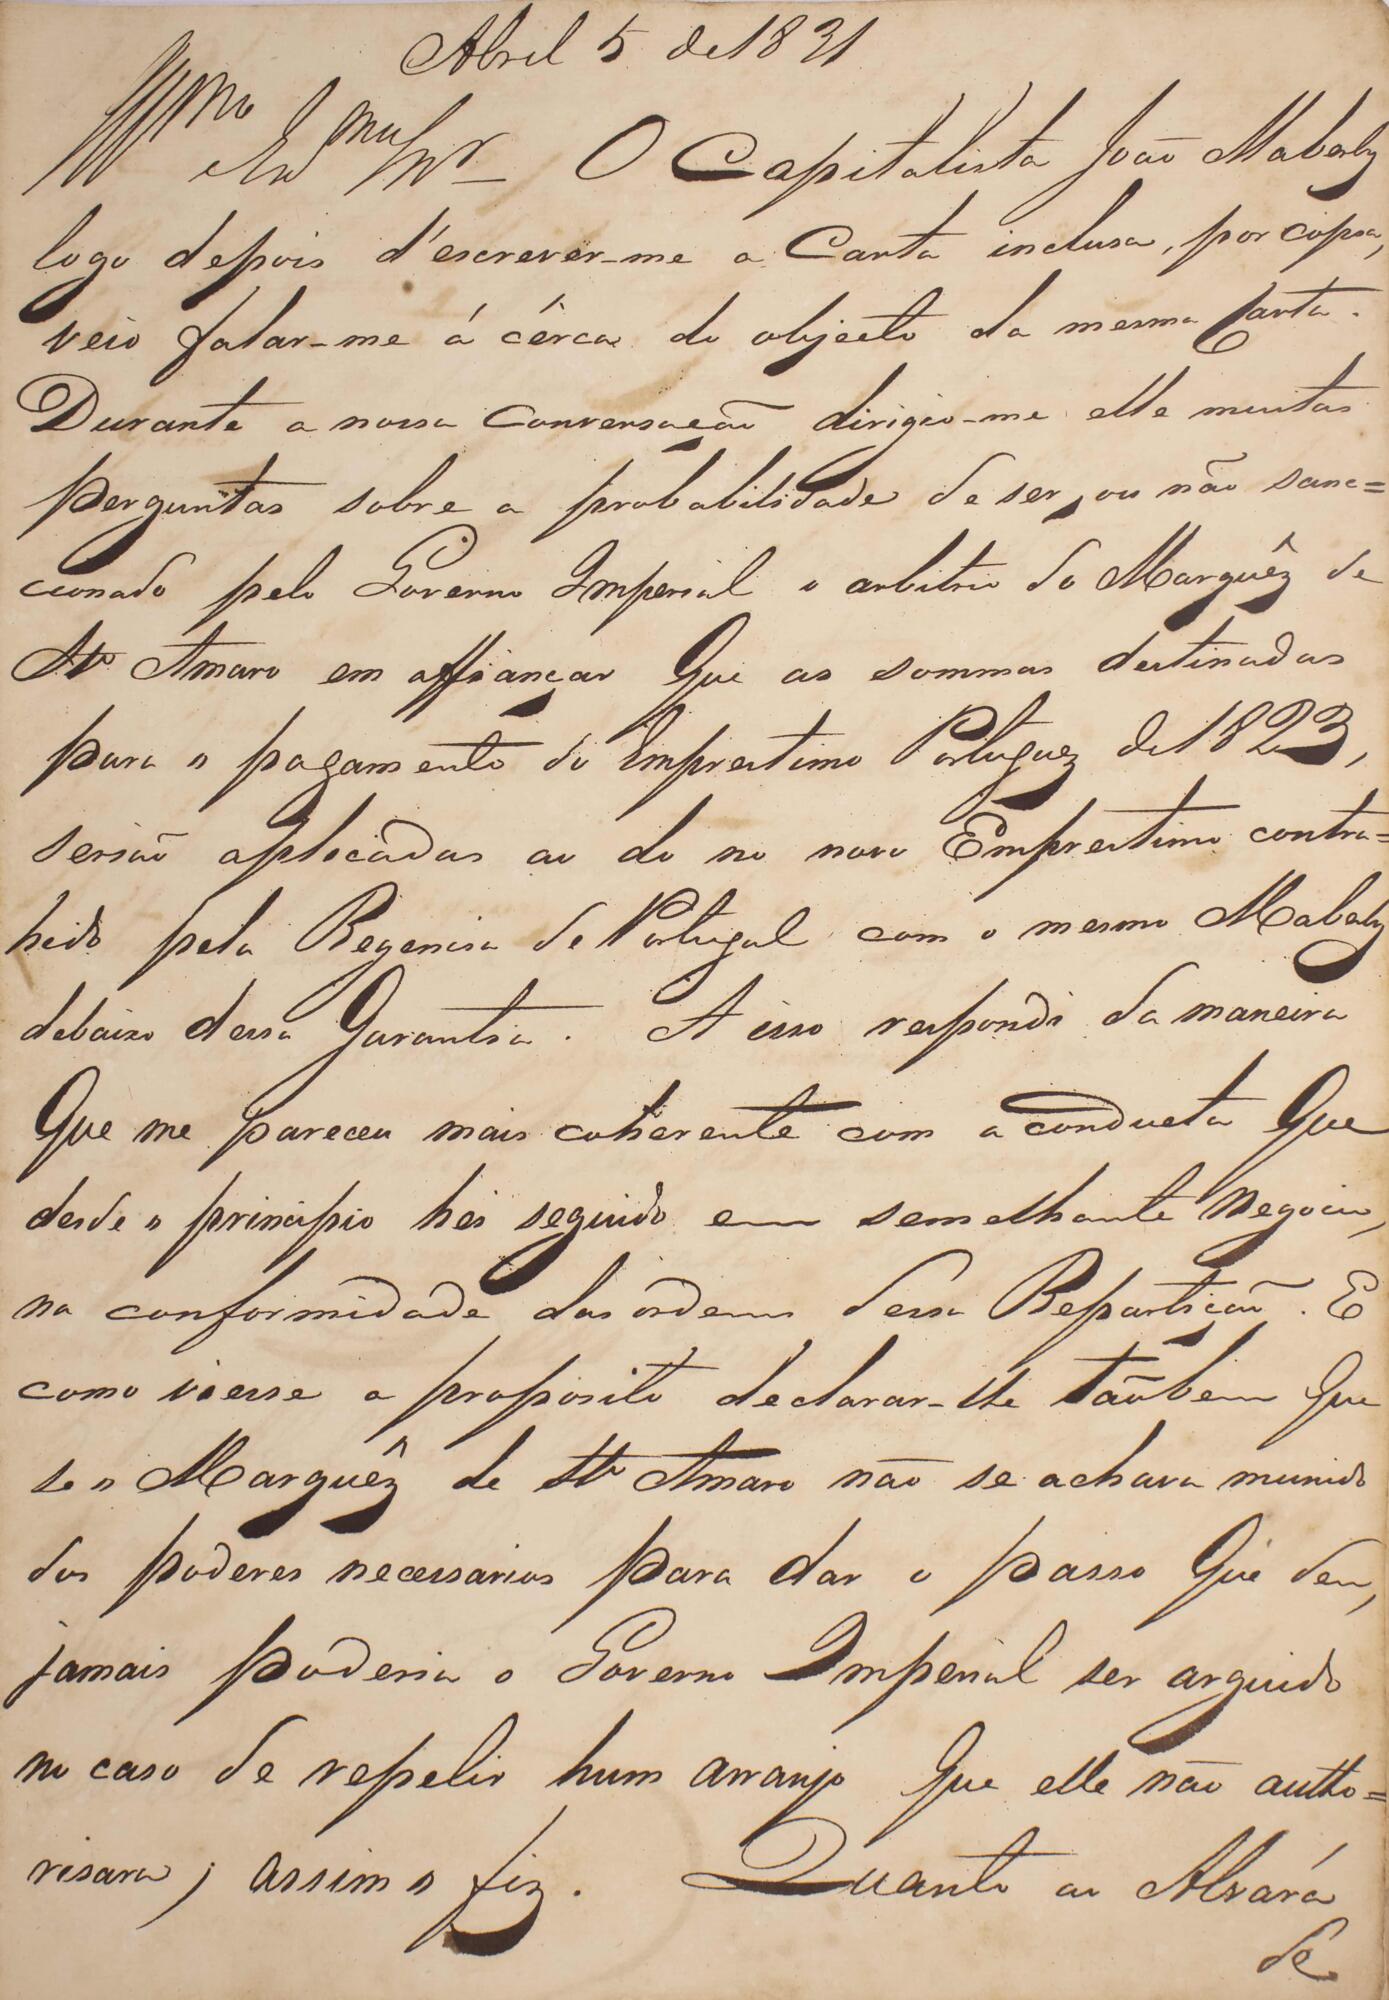 Abril 5 de 1831
Illmo Exmo Snr _ O Capitalista João Maberly
logo depois d'escrever-me a Carta inclusa, por copia,
veio falar-me á cêrca do objecto da mesma Carta.
Durante a nossa Conversação dirigio-me elle muitas
perguntas sobre a probabilidade de ser, ou não sanc=
cionado pelo Governo Imperial o arbitrio do Marquêz de
Sto Amaro em affiançar Que as sommas destinadas
para o pagamento do Emprestimo Portuguez de 1823,
serião aplicadas ao do no novo Emprestimo contra=
hido pela Regencia de Portugal com o mesmo Maberly
debaixo dessa Garantia. A isso respondi da maneira
Que me pareceu mais coherente com a conducta Que
desde o principio hei seguido em semelhante Negocio,
na conformidade das ordens dessa Repartição. E
como viesse a proposito declarar-lhe tãobem Que
se o Marquêz de Sto Amaro não se achava munido
dos poderes necessarios para dar o passo Que deu,
jamais poderia o Governo Imperial ser arguido
no caso de repelir hum arranjo Que elle não autho=
risara; assim o fiz. Quanto ao Alvará
de